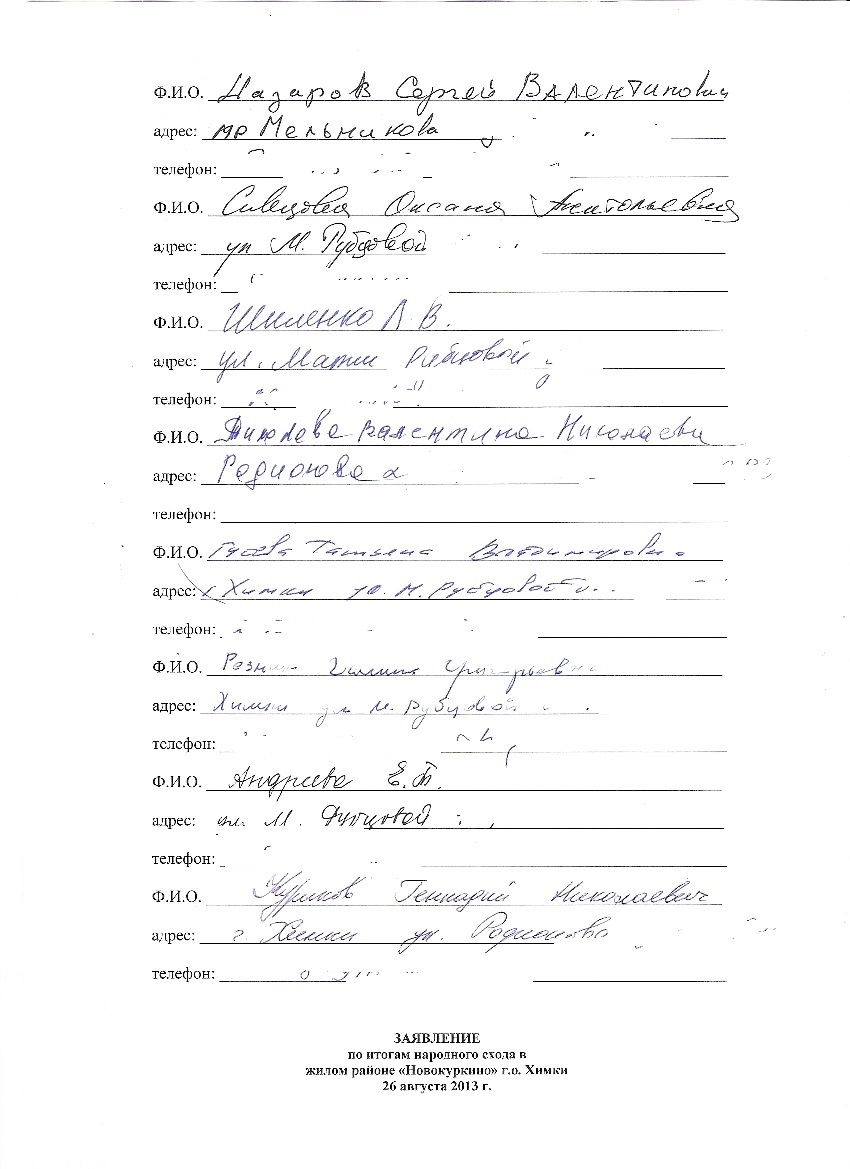 Ф.И.О. Назаров Сергей Валентинович
адрес: пр Мельникова
телефон:
Ф.И.О. Оксана Анатольевна
адрес: ул М. Рубцовой
телефон:
Ф.И.О. Шиленко Л. В.
адрес: ул. Марии Рубцовой
телефон:
Ф.И.О. Валентина Николаевн
адрес: Родионова
телефон:
Ф.И.О. Гусева Татьяна Владимировн
адрес: г Химки ул. М. Рубцовой
телефон:
Ф.И.О. Галина Григорьевна
адрес: Химки ул М. Рубцовой
телефон:
Ф.И.О. Андреева Е.В.
адрес: ул. М. Рубцовой
телефон:
Ф.И.О. Куликов Геннадий Николаевич
адрес: г. Химки ул. Родионова
телефон:
ЗАЯВЛЕНИЕ
по итогам народного схода в
жилом районе «Новокуркино» г.о. Химки
26 августа 2013 г.